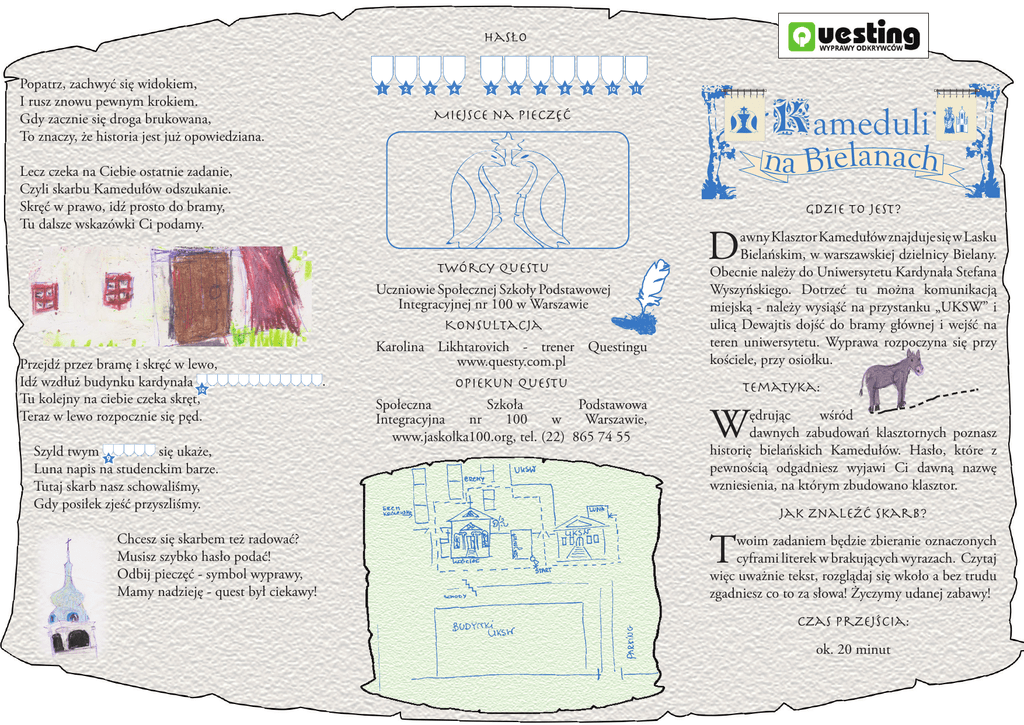 Popatrz, zachwyć się widokiem,
I rusz znowu pewnym krokiem.
Gdy zacznie się droga brukowana,
To znaczy, że historia jest już opowiedziana.
Lecz czeka na Ciebie ostatnie zadanie,
Czyli skarbu Kamedułów odszukanie.
Skręć w prawo, idź prosto do bramy,
Tu dalsze wskazówki Ci podamy.
Przejdź przez bramę i skręć w lewo,
Idź wzdłuż budynku kardynała .
Tu kolejny na ciebie czeka skręt,
Teraz w lewo rozpocznie się pęd.
Szyld twym się ukaże,
Luna napis na studenckim barze.
Tutaj skarb nasz schowaliśmy,
Gdy posiłek zjeść przyszliśmy.
Chcesz się skarbem też radować?
Musisz szybko hasło podać!
Odbij pieczęć - symbol wyprawy,
Mamy nadzieję - quest był ciekawy!
HASŁO
1 2 3 4 5 6 7 8 9 10 11
MIEJSCE NA PIECZĘĆ
TWÓRCY QUESTU
Uczniowie Społecznej Szkoły Podstawowej
Integracyjnej nr 100 w Warszawie
KONSULTACJA
Karolina Likhtarovich - trener Questingu
www.questy.com.pl
OPIEKUN QUESTU
Społeczna Szkoła Podstawowa
Integracyjna nr 100 w Warszawie,
www.jaskolka100.org, tel. (22) 865 74 55
UKSW
EREMY
LUNA
UKSW
KOŚCIÓŁ
START
SCHODY
BUDYNKI
UKSW
PARKING
Questing
WYPRAWY ODKRYWCÓW
Kameduli
na Bielanach
GDZIE TO JEST?
Dawny Klasztor Kamedułów znajduje się w Lasku
Bielańskim, w warszawskiej dzielnicy Bielany.
Obecnie należy do Uniwersytetu Kardynała Stefana
Wyszyńskiego. Dotrzeć tu można komunikacją
miejską - należy wysiąść na przystanku „UKSW” i
ulicą Dewajtis dojść do bramy głównej i wejść na
teren uniwersytetu. Wyprawa rozpoczyna się przy
kościele, przy osiołku.
TEMATYKA:
Wędrując wśród
dawnych zabudowań klasztornych poznasz
historię bielańskich Kamedułów. Hasło, które z
pewnością odgadniesz wyjawi Ci dawną nazwę
wzniesienia, na którym zbudowano klasztor.
JAK ZNALEŹĆ SKARB?
Twoim zadaniem będzie zbieranie oznaczonych
cyframi literek w brakujących wyrazach. Czytaj
więc uważnie tekst, rozglądaj się wkoło a bez trudu
zgadniesz co to za słowa! Życzymy udanej zabawy!
CZAS PRZEJŚCIA:
ok. 20 minut